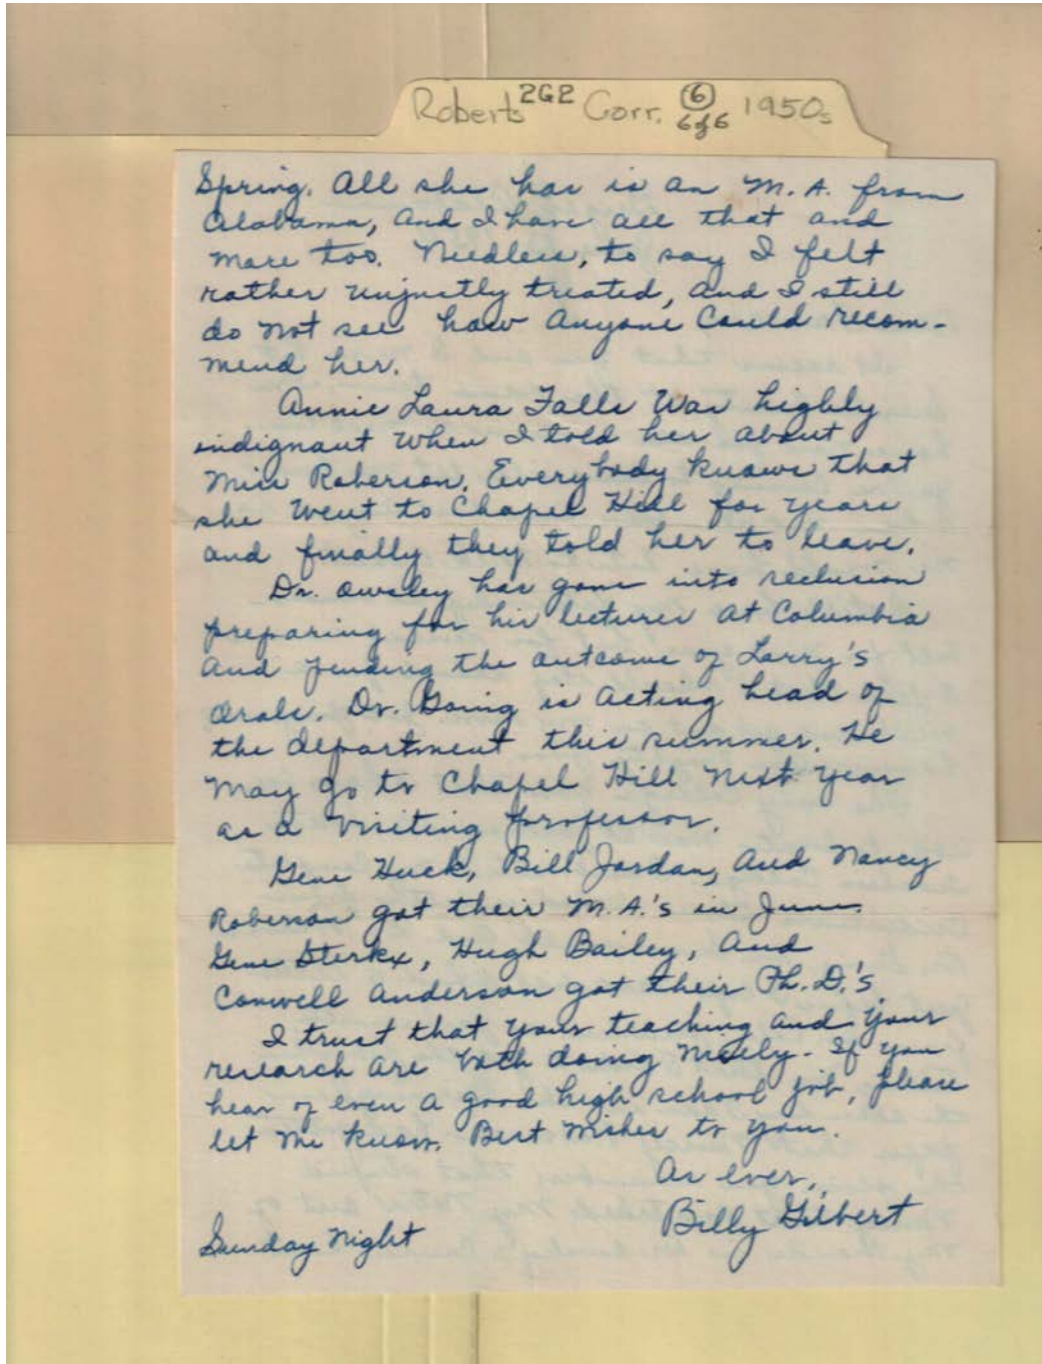 Roberts 2G2 Corr. 6 1950s
6 of 6
Spring. All she has is an M.A. from
Alabama, and I have all that and
more too. Needless, to say I felt
rather unjustly treated, and I still
do not see how anyone could recom-
mend her.
Annie Laura Falls was highly
indignant when I told her about
Miss Roberson. Everybody knows that
she went to Chapel Hill for years
and finally they told her to leave.
Dr. Owsley has gone into reclusion
preparing for his lectures at Columbia
and pending the outcome of Larry's
orals. Dr. Going is acting head of
the department this summer. He
may go to Chapel Hill next year
as a visiting professor.
Gene Huck, Bill Jordan, and Nancy
Roberson got their M.A.'s in June.
Gene Sterkx, Hugh Bailey, and
Conwell Anderson got their Ph.D.'s
I trust that your teaching and your
research are both doing nicely. If you
hear of even a good high school job, please
let me know. Best wishes to you.
As ever,
Billy Gilbert
Sunday Night